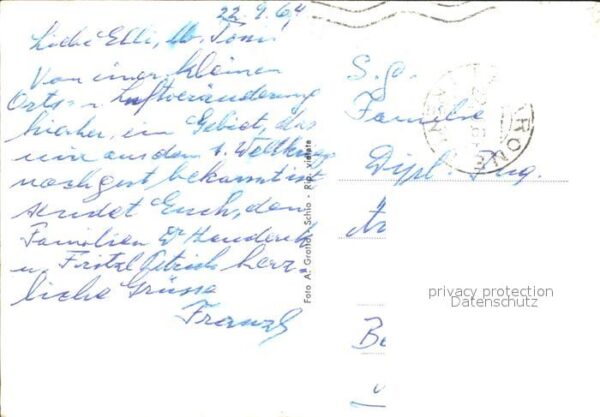 22.9.64
Liebe Elli, lb. Toni!
Von einer kleinen
Orts- u. Luftveränderung
hierher, ein Gebiet, das
mir aus dem 1. Weltkrieg
noch gut bekannt ist
sendet Euch, den
Familien
u. Fritzl herz-
liche Grüsse
Franzl
Foto A. Grotto - Schio - Rip. vietata
S. g.
Familie
Dipl. Ing.
privacy protection
Datenschutz